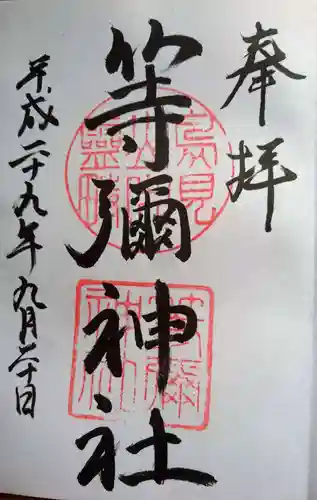 奉拝
等彌神社
平成二十九年九月二十日